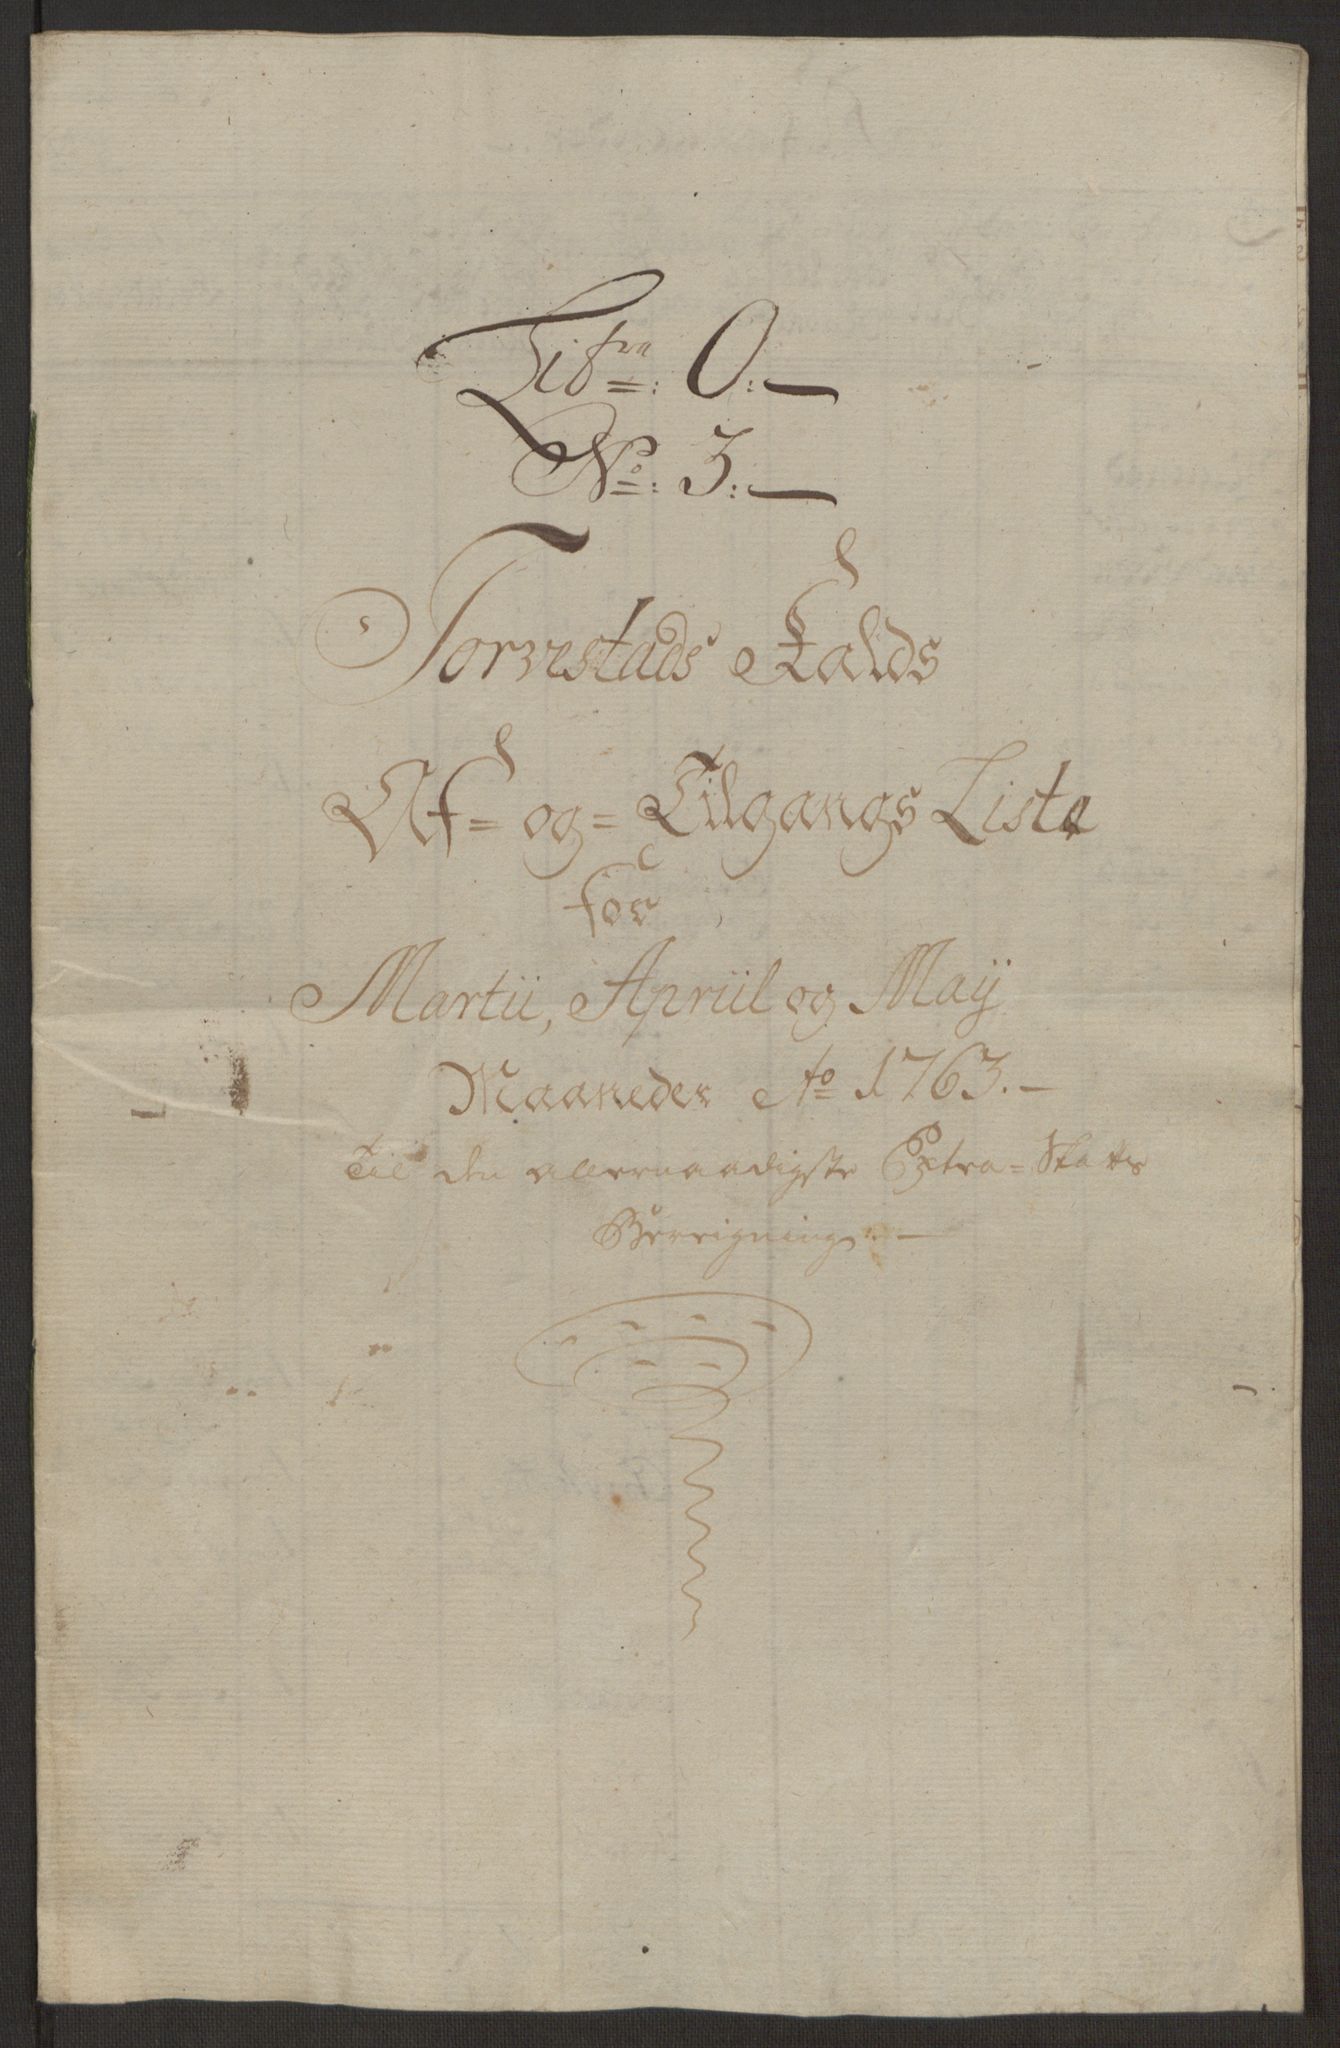 Litra: O:—
No: 3:—
Torvestads Kalds
Af= og= Tilgangs Liste
for
Martii, Apriil og Maij
Maaneder Ao 1763.—
Til den allernaadigste Extra=Skatts
Berregning.—